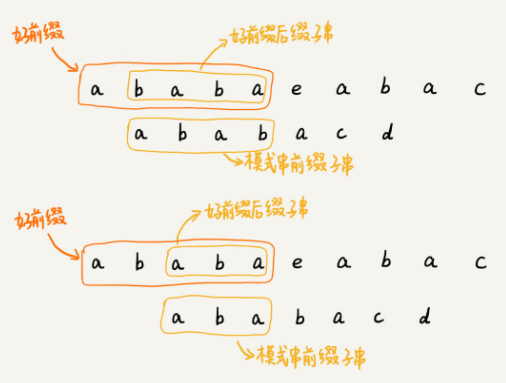 好前缀后缀子串
好前缀
a b a b a e a b a c
a b a b a c d
模式串前缀子串
好前缀后缀子串
好前缀
a b a b a e a b a c
a b a b a c d
模式串前缀子串